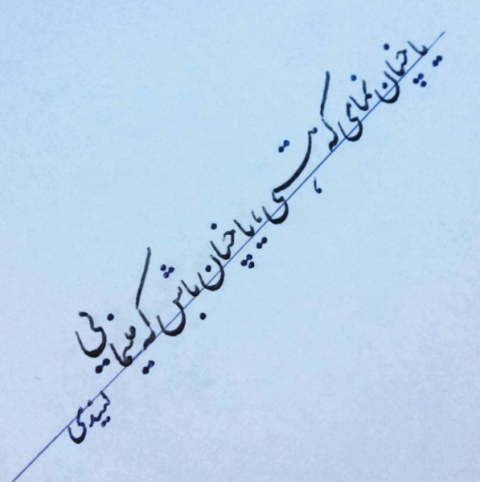 یا چنان نمای که هستی، یا چنان باش که مینمایی